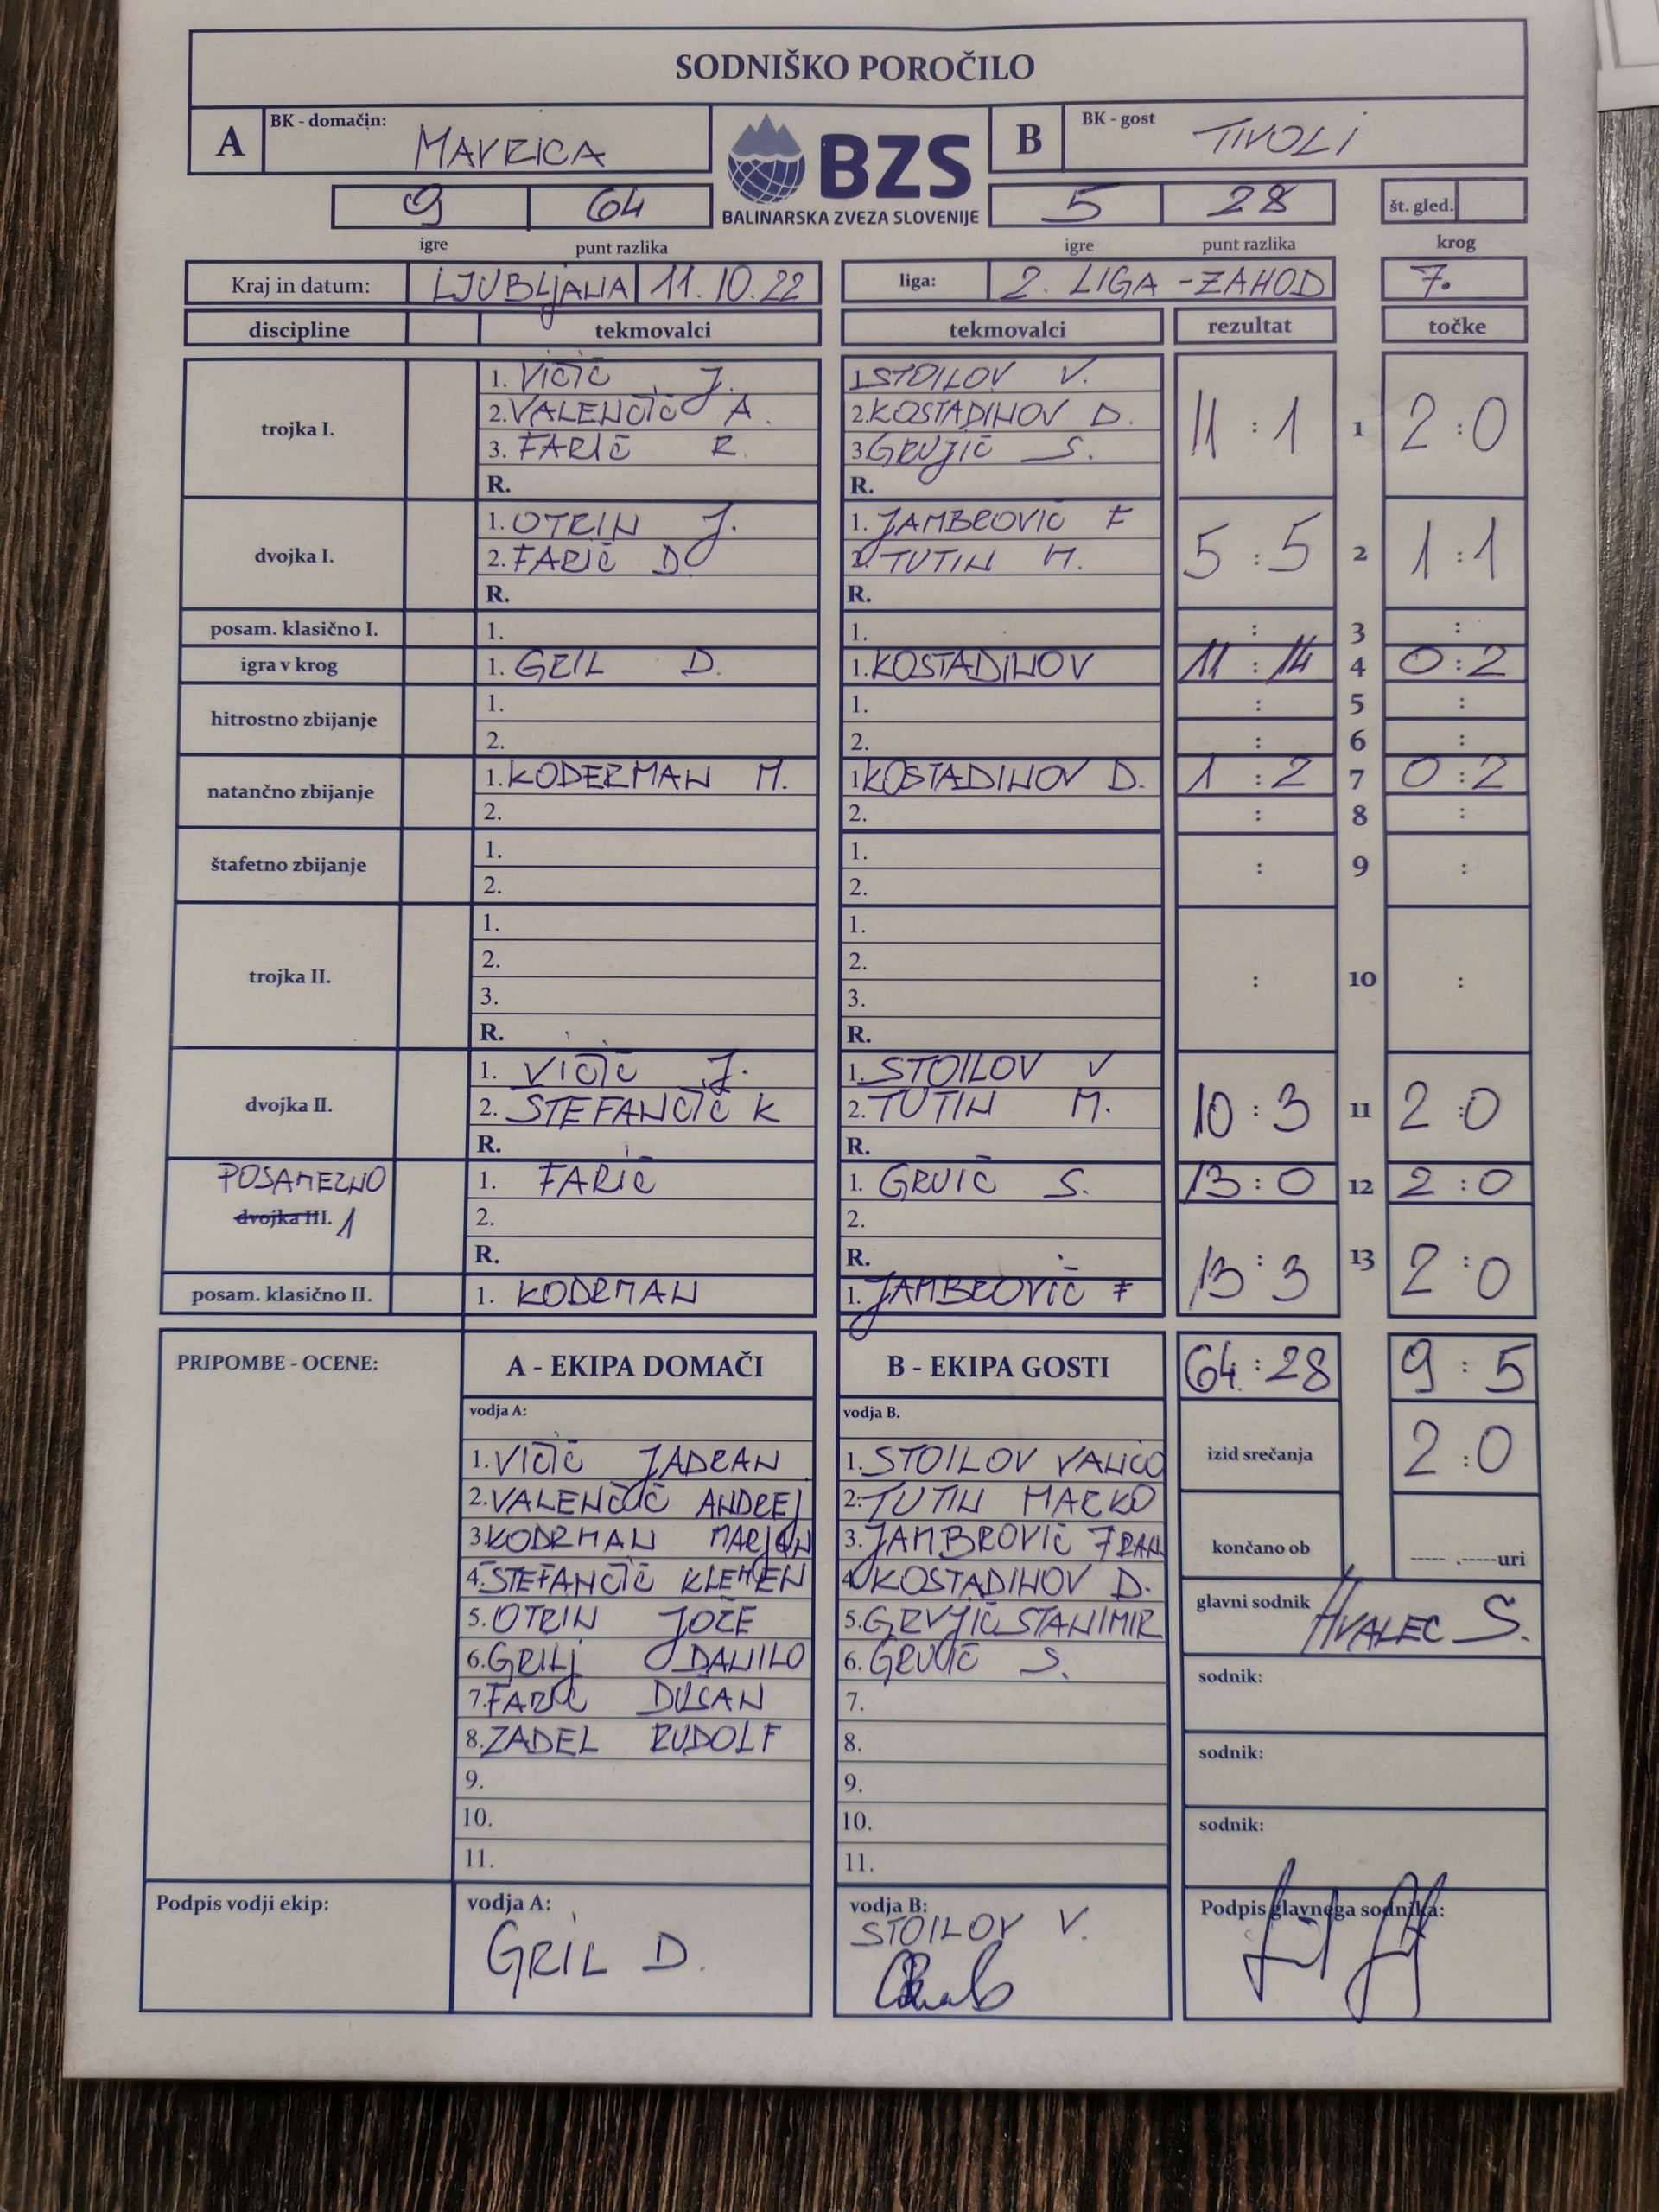 SODNIŠKO POROČILO
A BK - domačin: MAVRICA BZS B BK - gost TIVOLI
BALINARSKA ZVEZA SLOVENIJE
9 64 5 28 št. gled.
igre punt razlika igre punt razlika krog
Kraj in datum: LJUBLjANA 11.10.22 liga: 2. LIGA -ZAHOD 7.
discipline tekmovalci tekmovalci rezultat točke
trojka I. 1. VIČIČ J. 1. STOILOV V. 11 : 1 1 2 : 0
2. VALENČIČ A. 2. KOSTADINOV D.
3. FARIČ R. 3. GRUJIČ S.
R. R.
dvojka I. 1. OTRIN J. 1. JAMBROVIČ F 5 : 5 2 1 : 1
2. FARIČ D 2. TUTIN M.
R. R.
posam. klasično I. 1. 1. : 3 :
igra v krog 1. GRIL D. 1. KOSTADINOV 11 : 14 4 0 : 2
hitrostno zbijanje 1. 1. : 5 :
2. 2. : 6 :
natančno zbijanje 1. KODERMAN M. 1 KOSTADINOV D. 1 : 2 7 0 : 2
2. 2. : 8 :
štafetno zbijanje 1. 1. : 9 :
2. 2.
trojka II. 1. 1. : 10 :
2. 2.
3. 3.
R. R.
dvojka II. 1. VIČIČ J. 1. STOILOV V 10 : 3 11 2 : 0
2. STEFANČIČ K 2. TUTIN M.
R. R.
POSAMEZNO 1. FARIČ 1. GRUIČ S. 13 : 0 12 2 : 0
dvojka III. 1 2. 2.
R. R. 13 : 3 13 2 : 0
posam. klasično II. 1. KODRMAN 1. JAMBROVIČ F
PRIPOMBE - OCENE: A - EKIPA DOMAČI B - EKIPA GOSTI 64 : 28 9 : 5
vodja A: vodja B.
izid srečanja 2 : 0
1. VIČIČ JADRAN 1. STOILOV VANČO
2. VALENČIČ ANDREJ 2. TUTIN MARKO
3. KODRMAN MARJAN 3. JAMBROVIČ FRAN
končano ob ----- .-----uri
4. STEFANČIČ KLEMEN 4. KOSTADINOV D.
5. OTRIN JOŽE 5. GRUJIČ STANIMIR
glavni sodnik HVALEC S.
6. GRILJ DANILO 6. GRUIČ S.
7. FARIČ DUSAN 7.
sodnik:
8. ZADEL RUDOLF 8.
9. 9.
sodnik:
10. 10.
11. 11.
sodnik:
Podpis vodji ekip: vodja A: vodja B: Podpis glavnega sodnika:
GRIL D. STOILOV V.